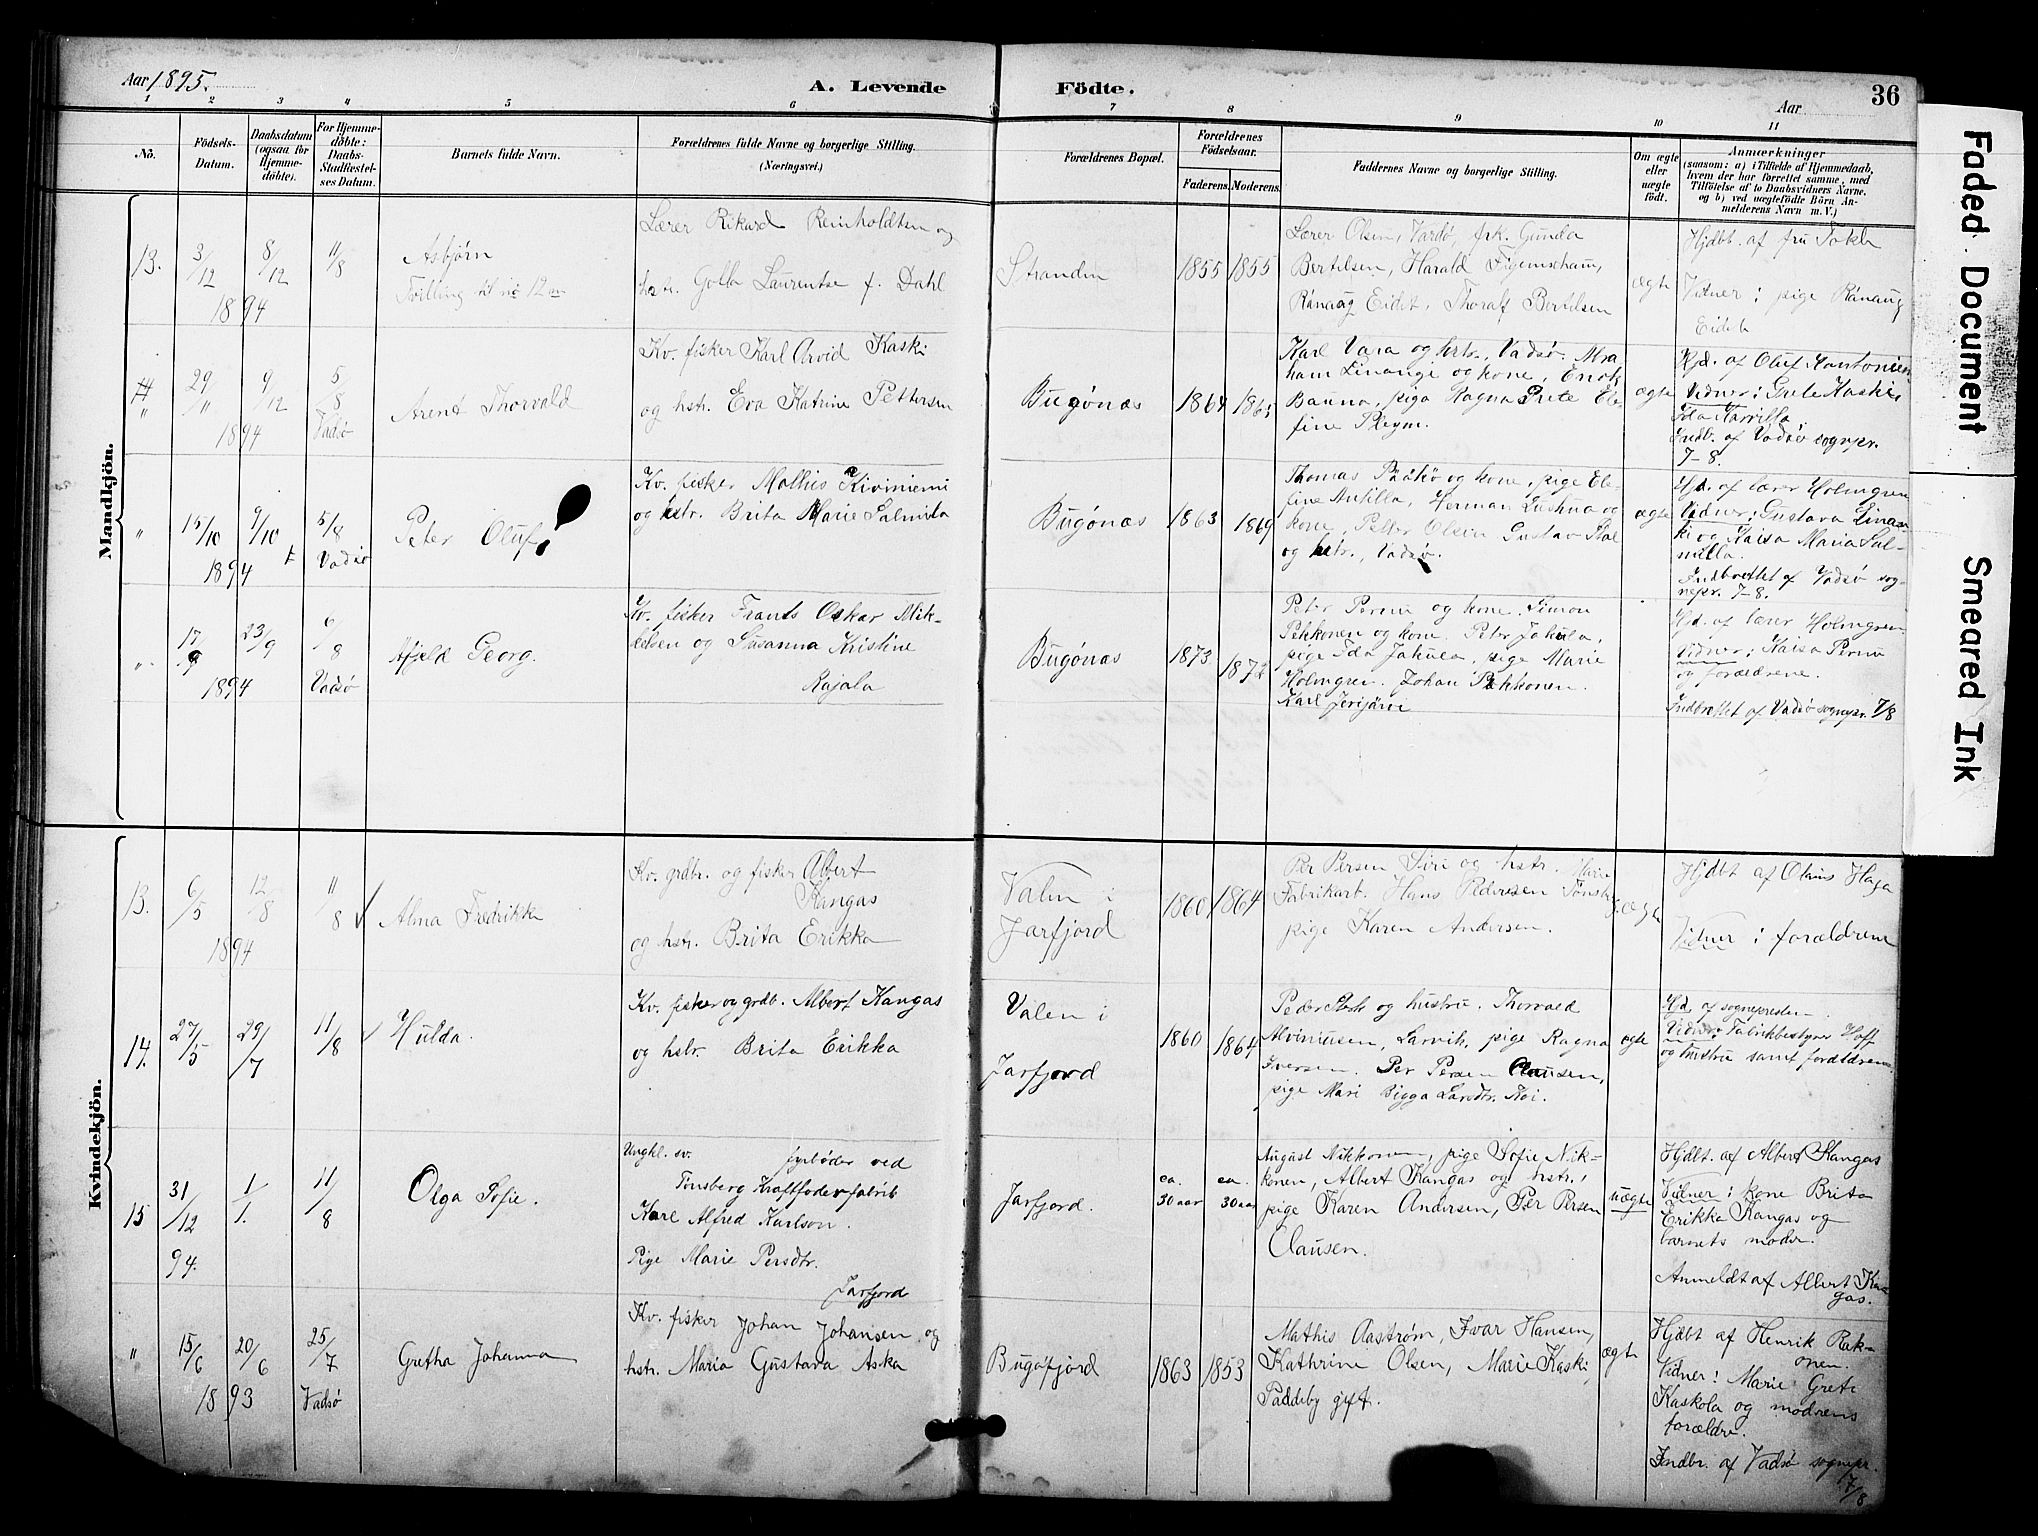 Aar 1895.
A. Levende
Födte.
Aar
36
1 2 3 4 5 6 7 8 9 10 11
No.
Födsels-Datum.
Daabsdatum (ogsaa for Hjemme-döbte).
For Hjemme-döbte: Daabs-Stadfæstel-ses Datum.
Barnets fulde Navn.
Forældrenes fulde Navne og borgerlige Stilling.
(Næringsvei.)
Forældrenes Bopæl.
Forældrenes Födselsaar.
Faderens.
Moderens.
Faddernes Navne og borgerlige Stilling.
Om ægte eller uægte födt.
Anmærkninger
(saasom: a) i Tilfælde af Hjemmedaab,
hvem der har forrettet samme, med
Tilföielse af to Daabsvidners Navne,
og b) ved uægtefödte Börn An-
melderens Navn m. V.)
Mandkjön.
13. 3/12 1894 8/12 11/8
Asbjørn
Tvilling til no 12
Lærer Rikard Reinholdtsen og
hstr. Golla Laurentse f. Dahl
Stranden
1855 1855
Lærer Olsen, Vardø, frk. Gunda
Bertelsen, Harald Figenscham,
Ranaug Eidet, Thoralf Bertelsen
ægte
Hjdbt. af fru
Vidner: pige Ranaug
Eidet
" 29/11 1894 9/12 5/8 Vadsø
Arent Thorvald
Kv. fisker Karl Arvid Kaski
og hstr. Eva Katrine Pettersen
Bugønæs
1864 1865
Karl Vara og hstr., Vadsø. Abra
ham Linange og kone, Enok
Bauna, pige Ragna Grete Ele-
fine Pleym.
ægte
Hjd. af Oluf
Vidner: Grete Kaski,
Ida
Indb. af Vadsø sognepr.
7-8.
" 15/10 1894 9/10 5/8 Vadsø
Peter Oluf
Kv. fisker Mathis Kiviniemi
og hstr. Brita Marie Salmila
Bugønæs
1863 1869
Thomas og kone, pige Ele-
fine Antilla, Herman og
kone, Petter Olsen Gustav
og hstr., Vadsø.
ægte
Hjd. af lærer Holmgren
Vidner: Gustava
og Kaisa Maria Sal-
milla.
Indberettet af Vadsø sog-
nepr. 7-8.
" 17/9 1894 23/9 6/8 Vadsø
Afjeld Georg.
Kv. fisker Frants Oskar Mik-
kelsen og Susanna Kristine
Rajala
Bugønæs
1873 1872
Peter Pernu og kone. Simon
Pekkonen og kone. Peter Jakula,
pige Ida Jakula, pige Marie
Holmgren. Johan Pekkonen.
Karl Jerijärvi
Hjd. af lærer Holmgren
Vidner: Kaisa Pernu
og forældrene.
Indberettet af Vadsø sognepr. 7/8
Kvindekjön.
13. 6/5 1894 12/8 11/8
Alma Fredrikke
Kv. grdbr. og fisker Albert
Kangas
og hstr. Brita Erikka
Valen i
Jarfjord
1860 1864
Per Persen Siri og hstr. Marie
Fabrikarb. Hans Pedersen Tønsberg
pige Karen Andersen.
ægte
Hjdbt af Olaus Haga
Vidner: forældrene
14. 27/5 29/7 11/8
Hulda.
Kv. fisker og grdb. Albert Kangas
og hstr. Brita Erikka
Valen i
Jarfjord
1860 1864
Peder og hustru. Thorvald
Alviniusen, Larvik, pige Ragna
Iversen. Per Persen Clausen,
pige Mari Bigga Larsdtr.
ægte
Hjd. af sognepresten.
Vidner: Fabrikbestyrer Hoff
og hustru samt forældrene.
15 31/12 94. 1/1. 11/8
Olga Sofie.
Ungkl. sv. fyrbøder ved
Tønsberg Kraftfoderfabrik
Karl Alfred Karlson.
Pige Marie Persdtr.
Jarfjord
Jarfjord.
ca. 30 aar
ca. 30 aar
August Nikkonen, pige Sofie Nik-
konen, Albert Kangas og hstr.,
pige Karen Andersen, Per Persen
Clausen.
uægte
Hjdbt. af Albert Kangas
Vidner: kone Brita
Erikka Kangas og
barnets moder.
Anmeldt af Albert Kan
gas.
" 15/6 1893 20/6 25/7 Vadsø
Gretha Johanna
Kv. fisker Johan Johansen og
hstr. Maria Gustava Aska
Bugøfjord
1863 1853
Mathis Aastrøm, Ivar Hansen,
Kathrine Olsen, Marie Kaski,
Paddeby gift.
ægte
Hjdbt af Henrik Rak-
onen.
Vidner: Marie Grete
Kaskola og moderens
forældre.
Indbr. af Vadsø sognepr.
7/8
Faded Document
Smeared Ink